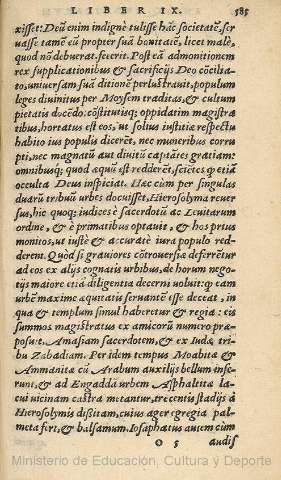 LIBER IX. 585
xisset: Deũ enim indignè tulisse hãc societatẽ, ser
uasse tamẽ eũ propter suã bonitatẽ, licet malè,
quod nõ debuerat, fecerit. Post eã admonitionem
rex supplicationibus & sacrificijs Deo cõcilia-
to, uniuersam suã ditionẽ perlustrauit, populum
leges diuinitus per Moysem traditas, & cultum
pietatis docẽdo: cõstitutisq; oppidatim magistra
tibus, hortatus est eos, ut solius iustitiæ respectu
habito ius populis dicerẽt, nec muneribus corru
pti, nec magnatũ aut diuitũ captãtes gratiam:
omnibusq; quod æquũ est redderẽt, sciẽtes q etiã
occulta Deus inspiciat. Hæc cùm per singulas
duarũ tribuũ urbes docuisset, Hierosolyma reuer
sus, hic quoq; iudices è sacerdotũ ac Leuitarum
ordine, & è primatibus optauit, & hos prius
monitos, ut iustè & accuratè iura populo red-
derent. Quòd si grauiores cõtrouersiæ deferrẽtur
ad eos ex alijs cognatis urbibus, de horum nego-
tijs maiore etiã diligentia decerni uoluit: q eam
urbẽ maximè æquitatis seruantẽ esse deceat, in
qua & templum simul haberetur & regia: eis
summos magistratus ex amicorũ numero præ-
posuit, Amasiam sacerdotem, & ex Iudæ tri-
bu Zabadiam. Per idem tempus Moabitæ &
Ammanitæ cũ Arabum auxilijs bellum infe-
runt, & ad Engaddã urbem Asphaltiti la-
cui uicinam castra metantur, trecentis stadijs à
Hierosolymis dissitam, cuius ager egregia pal-
meta fert, & balsamum. Iosaphatus autem cùm
O 5 audis
Ministerio de Educación, Cultura y Deporte